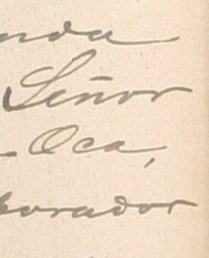 nda
Señor
-Oca,
borador